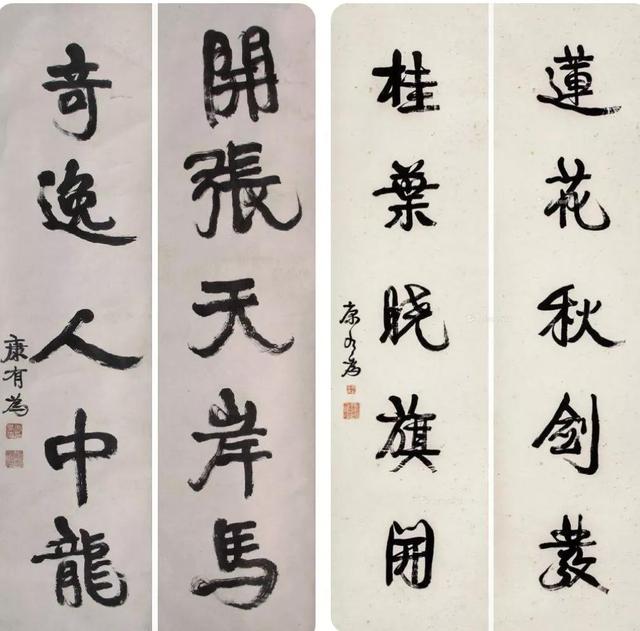 蓮花秋劍發
桂葉曉旗開
康有為
開張天岸馬
奇逸人中龍
康有為